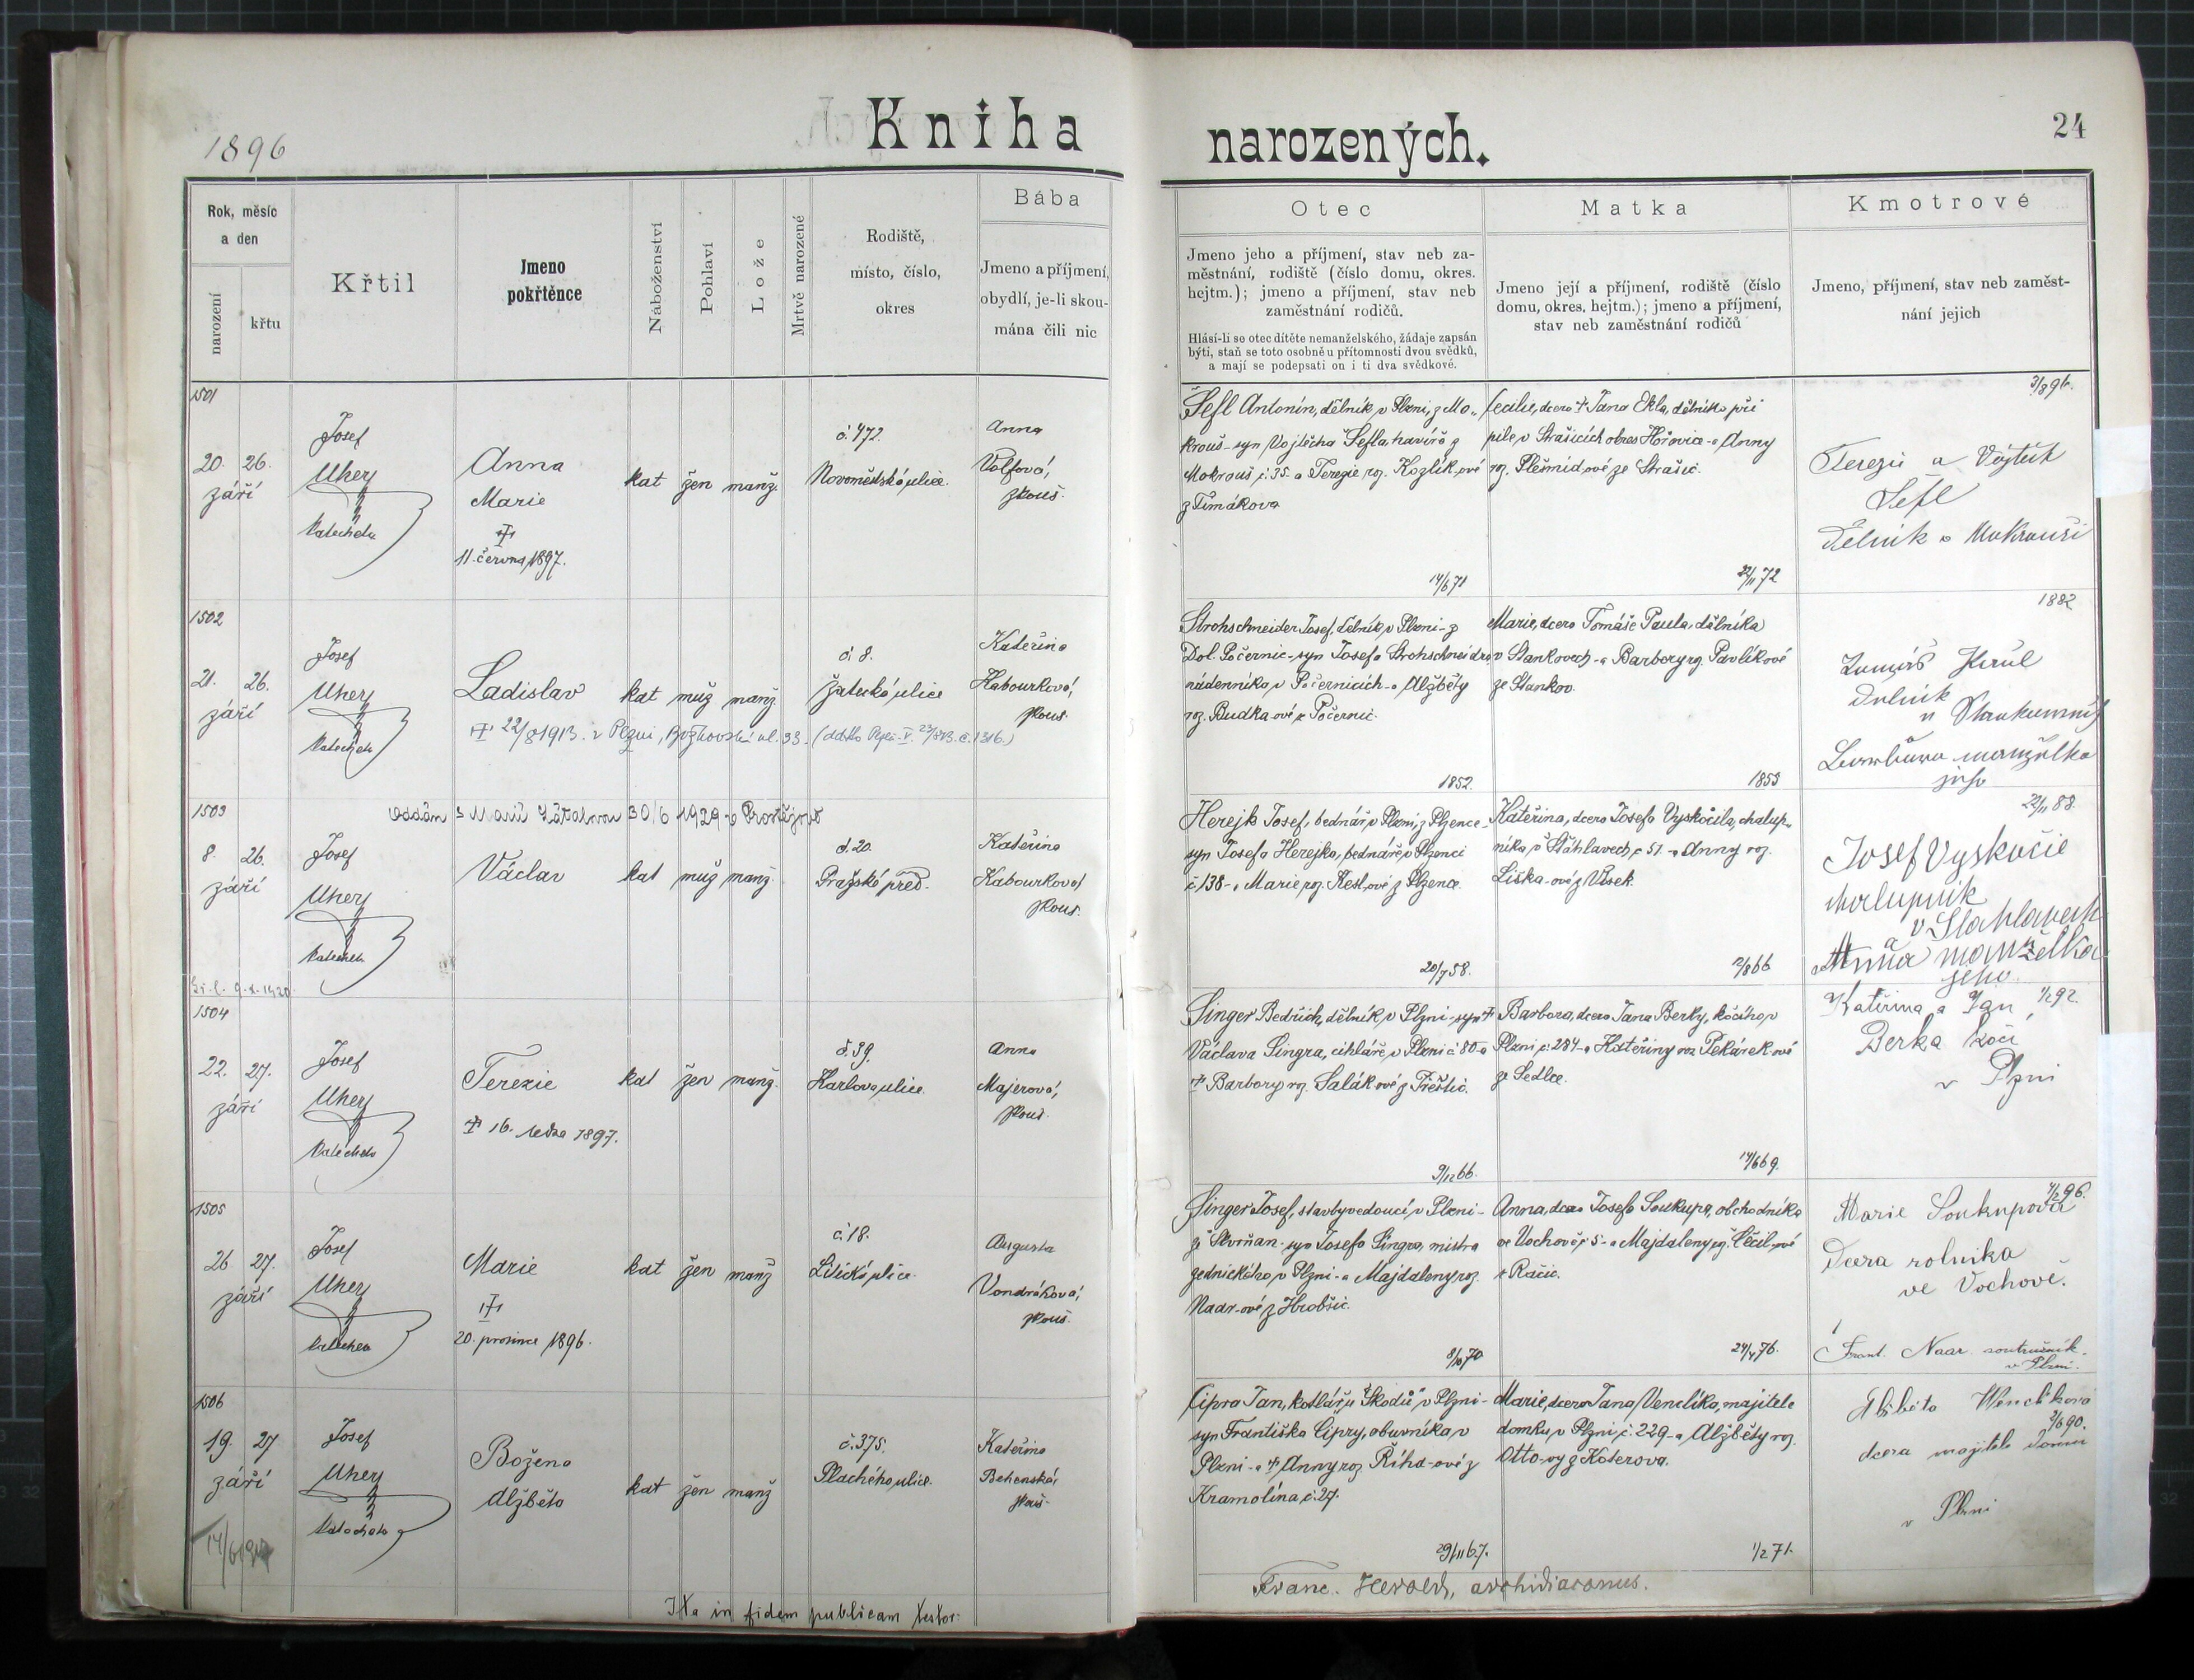 1896
Kniha
narozených.
24
Rok, měsíc
a den
narození
křtu
Křtil
Jmeno
pokřtěnce
Náboženství
Pohlaví
Lože
Mrtvě narozené
Rodiště,
místo, číslo,
okres
Bába
Jmeno a příjmení,
obydlí, je-li skou-
mána čili nic
Otec
Jmeno jeho a příjmení, stav neb za-
městnání, rodiště (číslo domu, okres.
hejtm.); jmeno a příjmení, stav neb
zaměstnání rodičů.
Hlásí-li se otec dítěte nemanželského, žádaje zapsán
býti, staň se toto osobně u přítomnosti dvou svědků,
a mají se podepsati on i ti dva svědkové.
Matka
Jmeno její a příjmení, rodiště (číslo
domu, okres. hejtm.); jmeno a příjmení,
stav neb zaměstnání rodičů
Kmotrové
Jmeno, příjmení, stav neb zaměst-
nání jejich
1501
20. 26.
září
Josef
Uher
katecheta
Anna
Marie
✝
11. června 1897.
kat žen manž.
č. 472.
Novoměstská ulice.
Anna
Volfová,
zkouš.
Šefl Antonín, dělník v Plzni, z Mo-
krouš - syn Vojtěcha Šefla, havíře z
Mokrouš č. 35. a Terezie roz. Kozlík-ové
z Tímákova
14/6 71
Cecilie, dcera ✝ Jana Ekla, dělníka při
pile v Strašicích okres Hořovice - a Anny
roz. Plešmíd-ové ze Strašic.
22/11 72
3/8 96.
Terezie a Vojtěch
Šefl
Dělník v Mokrouši
1502
21. 26.
září
Josef
Uher
katecheta
Ladislav
kat muž manž.
✝ 22/8 1913. v Plzni, Božkovská ul. 33.
č. 8.
Žatecká ulice
Kateřina
Habourková,
zkouš.
Strohschneider Josef, dělník v Plzni - z
Dol. Počernic - syn Josefa Strohschneidra,
nádenníka v Počernicích - a Alžběty
roz. Budka-ové z Počernic.
1852.
Marie, dcera Tomáše Paula, dělníka
v Stankovech - a Barbory roz. Pavlíkové
ze Stankov.
1853
1882
Tomáš Paul
manželka
jeho
1503
30/6 1929 v Prostějově
8. 26.
září
Josef
Uher
katecheta
Václav
kat muž manž.
č. 20.
Pražské před.
Kateřina
Kabourková
zkouš.
Herejk Josef, bednář v Plzni, z Plzence -
syn Josefa Herejka, bednáře v Plzenci
č. 138 - a Marie roz. Kesl-ové z Plzence.
20/7 58.
Kateřina, dcera Josefa Vyskočila, chalup-
níka v Šťáhlavech č. 51. - a Anny roz.
Liška-ové z Vísek.
12/8 66
22/11 88.
Josef Vyskočil
chalupník
v Štahlavech
a
Anna manželka
jeho.
1504
22. 27.
září
Josef
Uher
katecheta
Terezie
✝ 16. ledna 1897.
kat žen manž.
č. 39.
Karlova ulice.
Anna
Majerová,
zkouš.
Singer Bedřich, dělník v Plzni - syn ✝
Václava Singra, cihláře v Plzni č. 80 - a
✝ Barbory roz. Salák-ové z Přeštic.
9/12 66.
Barbora, dcera Jana Berky, kočího v
Plzni č. 284 - a Kateřiny roz. Pekárek-ové
ze Sedlce.
14/6 69.
Kateřina a Jan 1/2 92.
Berka kočí
v Plzni
1505
26 27.
září
Josef
Uher
katecheta
Marie
✝
20. prosince 1896.
kat žen manž
č. 18.
Litická ulice.
Augusta
Vondráková,
zkouš.
Singer Josef, stavbyvedoucí v Plzni -
ze Skvrňan - syn Josefa Singra, mistra
zednického v Plzni - a Majdaleny roz.
Naar-ové z Hrobšic.
8/10 70
Anna, dcera Josefa Soukupa, obchodníka
ve Vochově č. 5 - a Majdaleny roz. Čečil-ové
z Račic.
24/4 76.
4/2 96.
Marie Soukupová
Dcera rolníka
ve Vochově.
Frant. Naar soustružník.
v Plzni.
1506
19. 27
září
Josef
Uher
katecheta
Božena
Alžběta
kat žen manž
č. 375.
Plachého ulice.
Kateřina
Behenská,
zkouš.
Cipra Jan, kotlář u "Škodů" v Plzni -
syn Františka Cipry, obuvníka v
Plzni - a ✝ Anny roz. Říha-ové z
Kramolína č. 27.
29/11 67.
Marie, dcera Jana Venclíka, majitele
domku v Plzni č. 229 - a Alžběty roz.
Otto-vy z Koterova.
1/2 71.
Alžběta Wenclíková
2/6 90.
dcera majitele domu
v Plzni
Ita in fidem publicam testor:
Franc. Herold, archidiaconus.